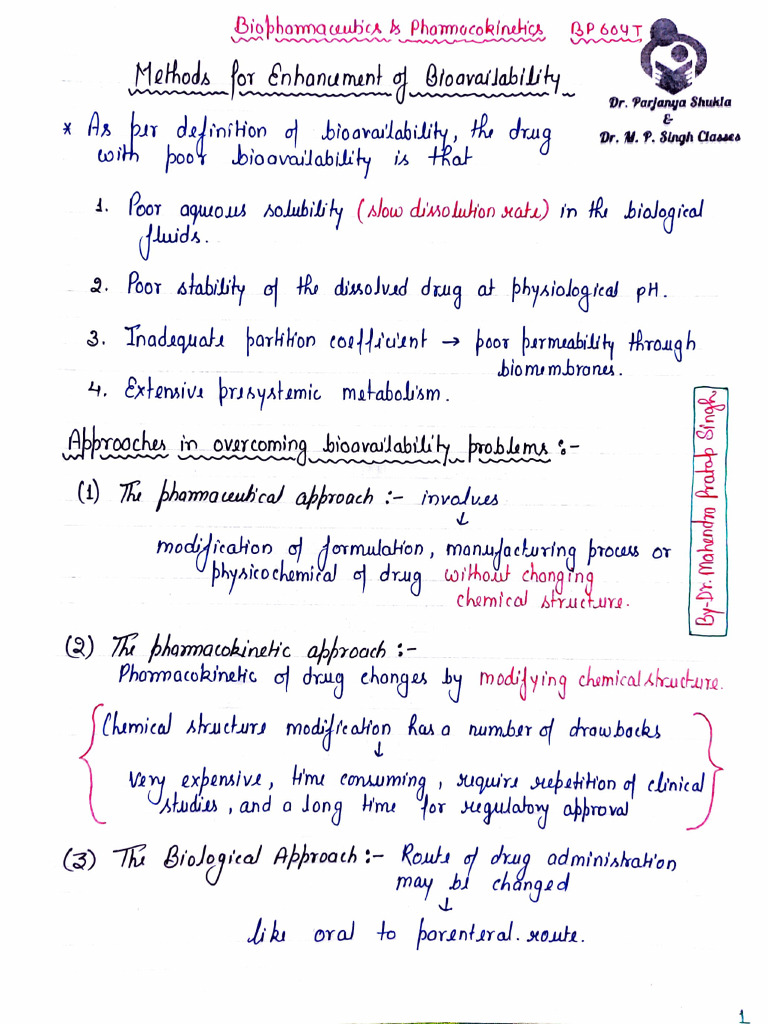 Biopharmaceutics & Pharmacokinetics BP604T
Dr. Parjanya Shukla
&
Dr. M. P. Singh Classes
Methods for Enhancement of Bioavailability
* As per definition of bioavailability, the drug
with poor bioavailability is that
1. Poor aqueous solubility (slow dissolution rate) in the biological
fluids.
2. Poor stability of the dissolved drug at physiological pH.
3. Inadequate partition coefficient → poor permeability through
biomembranes.
4. Extensive presystemic metabolism.
Approaches in overcoming bioavailability problems :-
(1) The pharmaceutical approach :- involves
↓
modification of formulation, manufacturing process or
physicochemical of drug without changing
chemical structure.
By-Dr. Mahendra Pratap Singh
(2) The pharmacokinetic approach :-
Pharmacokinetic of drug changes by modifying chemical structure.
{Chemical structure modification has a number of drawbacks
↓
Very expensive, time consuming, require repetition of clinical
studies, and a long time for regulatory approval}
(3) The Biological Approach :- Route of drug administration
may be changed
↓
like oral to parenteral. route.
1